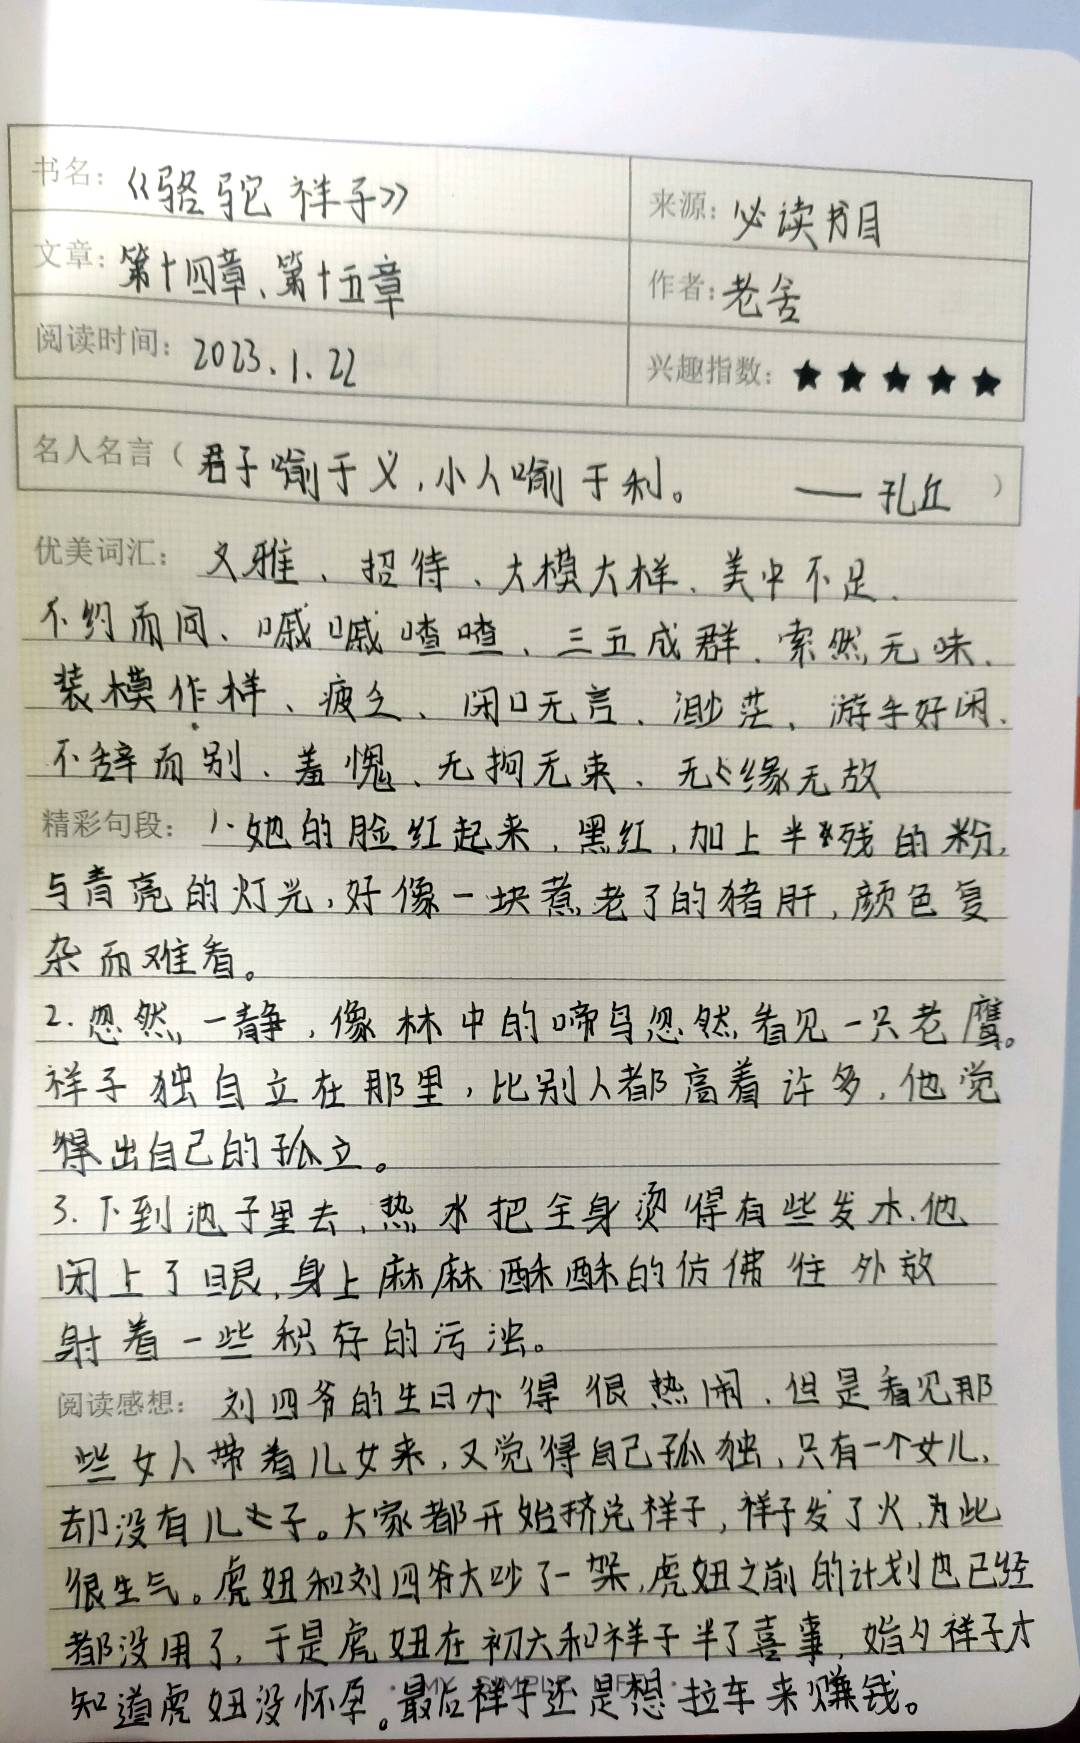 书名：《骆驼祥子》
来源：必读书目
文章：第十四章、第十五章
作者：老舍
阅读时间：2023.1.22
兴趣指数：★★★★★
名人名言（君子喻于义，小人喻于利。 ——孔丘）
优美词汇：文雅、招待、大模大样、美中不足、
不约而同、嘁嘁喳喳、三五成群、索然无味、
装模作样、疲乏、闭口无言、渺茫、游手好闲、
不辞而别、羞愧、无拘无束、无缘无故
精彩句段：1.她的脸红起来，黑红，加上半残的粉，
与青亮的灯光，好像一块煮老了的猪肝，颜色复
杂而难看。
2.忽然一静，像林中的啼鸟忽然看见一只老鹰。
祥子独自立在那里，比别人都高着许多，他觉
得出自己的孤立。
3.下到池子里去，热水把全身烫得有些发木，他
闭上了眼，身上麻麻酥酥的仿佛往外放
射着一些积存的污浊。
阅读感想：刘四爷的生日办得很热闹，但是看见那
些女人带着儿女来，又觉得自己孤独，只有一个女儿，
却没有儿子。大家都开始挤兑祥子，祥子发了火，为此
很生气。虎妞和刘四爷大吵了一架，虎妞之前的计划也已经
都没用了，于是虎妞在初六和祥子半了喜事，婚夕祥子才
知道虎妞没怀孕。最后祥子还是想拉车来赚钱。
MY SIMPLE LIFE